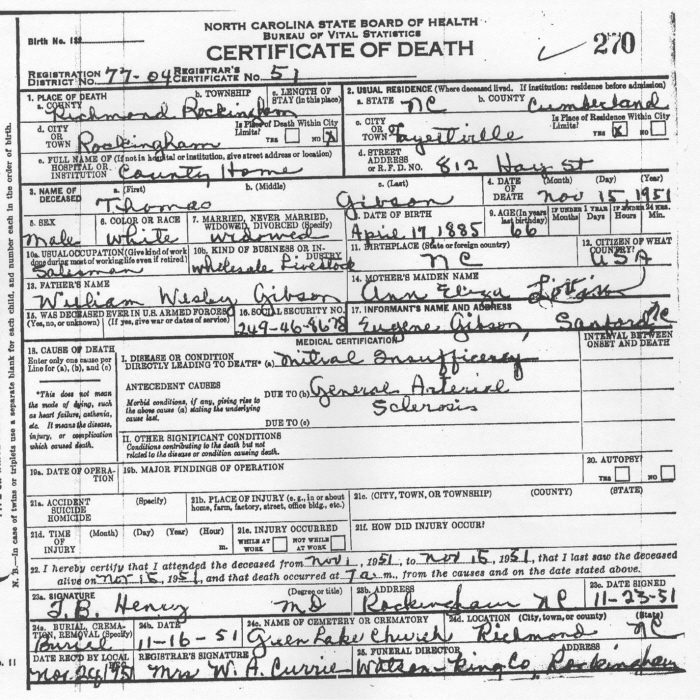 NORTH CAROLINA STATE BOARD OF HEALTH
BUREAU OF VITAL STATISTICS
CERTIFICATE OF DEATH
Birth No. 132
270
REGISTRATION DISTRICT No. 77-04 REGISTRAR'S CERTIFICATE No. 51
1. PLACE OF DEATH
a. COUNTY Richmond
b. TOWNSHIP Rockingham
c. LENGTH OF STAY (in this place)
2. USUAL RESIDENCE (Where deceased lived. If institution: residence before admission)
a. STATE NC
b. COUNTY Cumberland
d. CITY OR TOWN Rockingham
Is Place of Death Within City Limits? YES NO X
c. CITY OR TOWN Fayettville
Is Place of Residence Within City Limits? YES X NO
e. FULL NAME OF (If not in hospital or institution, give street address or location) HOSPITAL OR INSTITUTION County Home
d. STREET ADDRESS or R. F. D. NO. 812 Hay St
3. NAME OF DECEASED
a. (First) Thomas
b. (Middle)
c. (Last) Gibson
4. DATE OF DEATH (Month) (Day) (Year) Nov 15 1951
5. SEX Male
6. COLOR OR RACE White
7. MARRIED, NEVER MARRIED, WIDOWED, DIVORCED (Specify) widowed
8. DATE OF BIRTH April 17 1885
9. AGE (In years last birthday) 66
IF UNDER 1 YEAR Months Days
IF UNDER 24 HRS. Hours Min.
10a. USUAL OCCUPATION (Give kind of work done during most of working life even if retired) Salesman
10b. KIND OF BUSINESS OR INDUSTRY Wholesale Livestock
11. BIRTHPLACE (State or foreign country) NC
12. CITIZEN OF WHAT COUNTRY? USA
13. FATHER'S NAME William Wesley Gibson
14. MOTHER'S MAIDEN NAME Ann Eliza
15. WAS DECEASED EVER IN U.S. ARMED FORCES? (Yes, no, or unknown) (If yes, give war or dates of service)
16. SOCIAL SECURITY NO. 249-46-8678
17. INFORMANT'S NAME AND ADDRESS Eugene Gibson, Sanford NC
MEDICAL CERTIFICATION
INTERVAL BETWEEN ONSET AND DEATH
18. CAUSE OF DEATH
Enter only one cause per Line for (a), (b), and (c)
*This does not mean the mode of dying, such as heart failure, asthenia, etc. It means the disease, injury, or complication which caused death.
I. DISEASE OR CONDITION DIRECTLY LEADING TO DEATH* (a) Mitral Insufficency
ANTECEDENT CAUSES
Morbid conditions, if any, giving rise to the above cause (a) stating the underlying cause last.
DUE TO (b) General Arterial Sclerosis
DUE TO (c)
II. OTHER SIGNIFICANT CONDITIONS
Conditions contributing to the death but not related to the disease or condition causing death.
19a. DATE OF OPERATION
19b. MAJOR FINDINGS OF OPERATION
20. AUTOPSY? YES NO
21a. ACCIDENT SUICIDE HOMICIDE (Specify)
21b. PLACE OF INJURY (e. g., in or about home, farm, factory, street, office bldg., etc.)
21c. (CITY, TOWN, OR TOWNSHIP) (COUNTY) (STATE)
21d. TIME OF INJURY (Month) (Day) (Year) (Hour) m.
21e. INJURY OCCURRED WHILE AT WORK NOT WHILE AT WORK
21f. HOW DID INJURY OCCUR?
22. I hereby certify that I attended the deceased from Nov 1, 1951, to Nov 15, 1951, that I last saw the deceased
alive on Nov 15, 1951, and that death occurred at 7 a m., from the causes and on the date stated above.
23a. SIGNATURE (Degree or title) T. B. Henry MD
23b. ADDRESS Rockingham NC
23c. DATE SIGNED 11-23-51
24a. BURIAL, CREMATION, REMOVAL (Specify) Burial
24b. DATE 11-16-51
24c. NAME OF CEMETERY OR CREMATORY Green Lake Church
24d. LOCATION (City, town, or county) (State) Richmond NC
DATE REC'D BY LOCAL REG.
REGISTRAR'S SIGNATURE Mrs W. A. Currie
25. FUNERAL DIRECTOR Watson-King Co,
ADDRESS Rockingham
N. B.—In case of twins or triplets use a separate blank for each child, and number each in the order of birth.